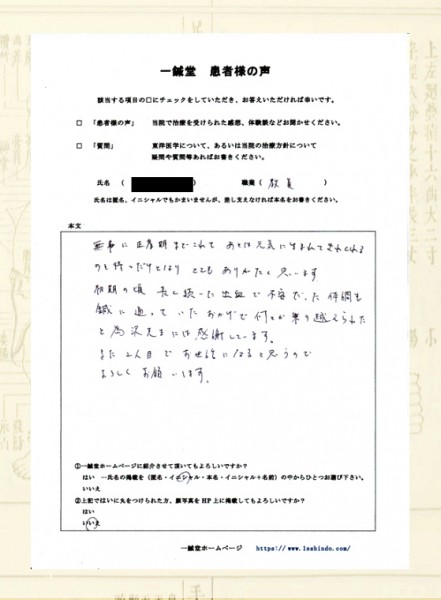 一鍼堂　患者様の声
該当する項目の□にチェックをしていただき、お答えいただければ幸いです。
□　「患者様の声」　当院で治療を受けられた感想、体験談などお聞かせください。
□　「質問」　東洋医学について、あるいは当院の治療方針について
疑問や質問等あればお書きください。
氏名　（　　　　）　職業（　　　　）
氏名は匿名、イニシャルでもかまいませんが、差し支えなければ本名をお書きください。
本文
無事に正産期までこれて　あとは元気に生まれてきてくれる
のを待つだけとなり　とても　ありがたく　思います
初期の頃　長く続いた出血で不安だった時期も
鍼に通っていたおかげで何とか乗り越えられた
と　先生には感謝しています。
また２人目で　お世話になると思うので
よろしく　お願いします。
①一鍼堂ホームページに紹介させて頂いてもよろしいですか？
はい　―氏名の掲載を（匿名・イニシャル・本名・イニシャル＋名前）の中からひとつお選び下さい。
いいえ
②上記ではいに丸をつけられた方、顔写真をHP上に掲載してもよろしいですか？
はい
いいえ
一鍼堂ホームページ　https://www.isshindo.com/